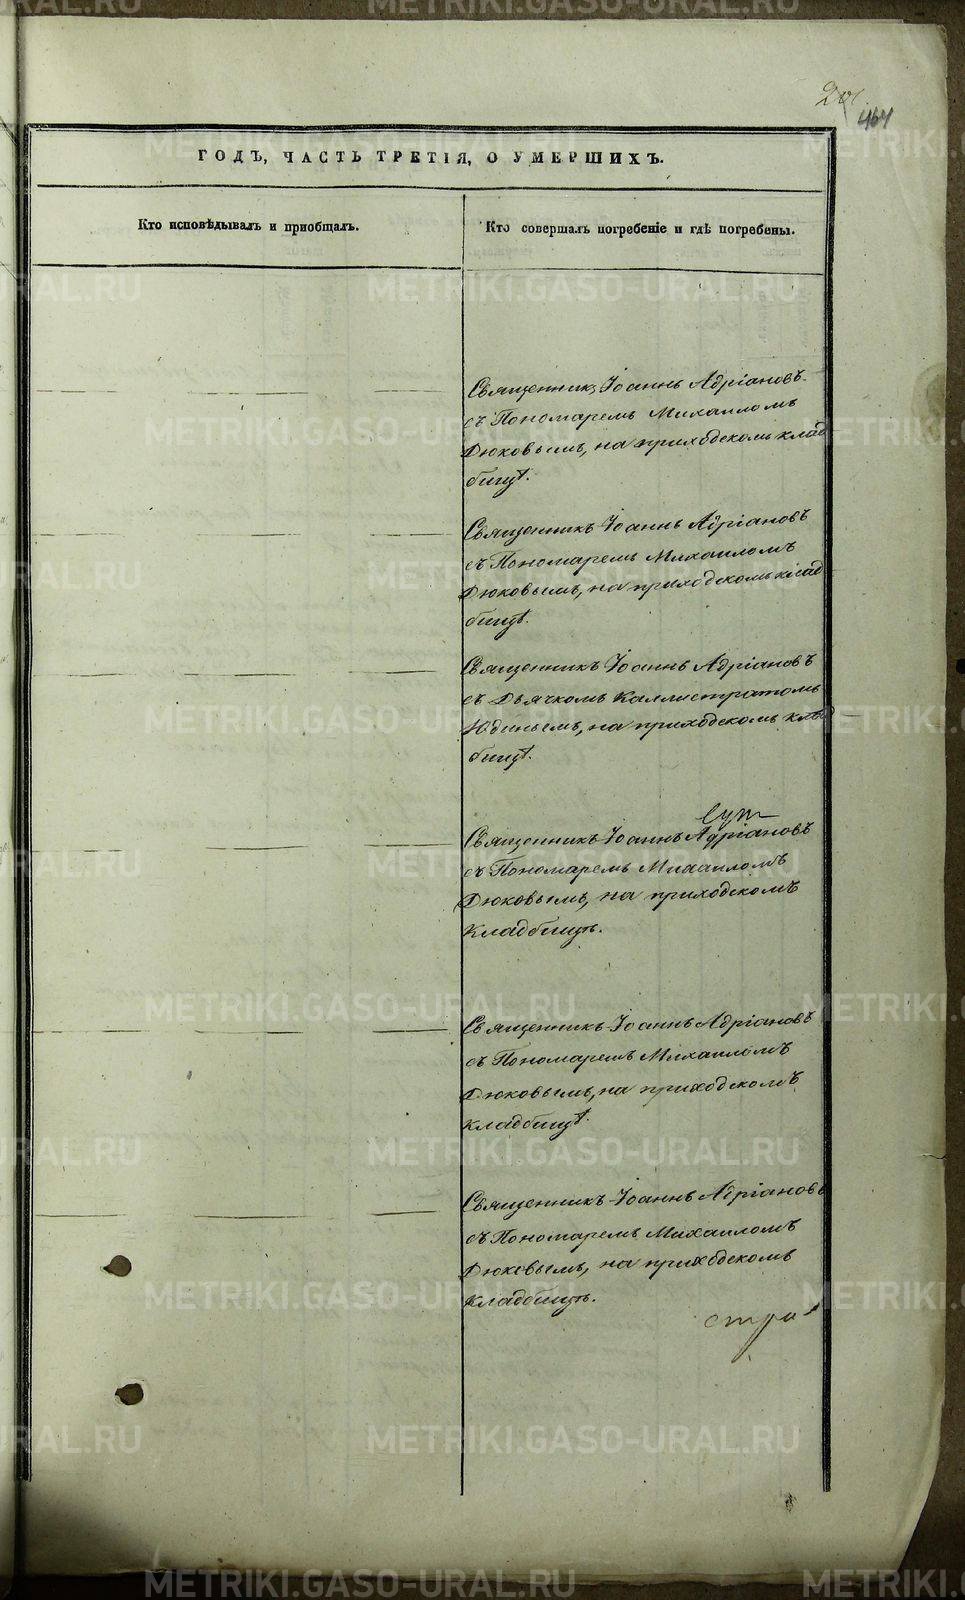 464
ГОДЪ, ЧАСТЬ ТРЕТІЯ, О УМЕРШИХЪ.
Кто исповѣдывалъ и пріобщалъ.
Кто совершалъ погребеніе и гдѣ погребены.
Священникъ Іоаннъ Адріановъ
съ Пономаремъ Михаиломъ
Дюковымъ, на приходскомъ клад
бищѣ.
Священникъ Іоаннъ Адріановъ
съ Пономаремъ Михаиломъ
Дюковымъ, на приходскомъ клад
бищѣ.
Священникъ Іоаннъ Адріановъ
съ Дьячкомъ Каллистратомъ
Юдинымъ, на приходскомъ клад
бищѣ.
Священникъ Іоаннъ Адріановъ
съ Пономаремъ Михаиломъ
Дюковымъ, на приходскомъ
кладбищѣ.
Священникъ Іоаннъ Адріановъ
съ Пономаремъ Михаиломъ
Дюковымъ, на приходскомъ
кладбищѣ.
Священникъ Іоаннъ Адріановъ
съ Пономаремъ Михаиломъ
Дюковымъ, на приходскомъ
кладбищѣ.
METRIKI.GASO-URAL.RU